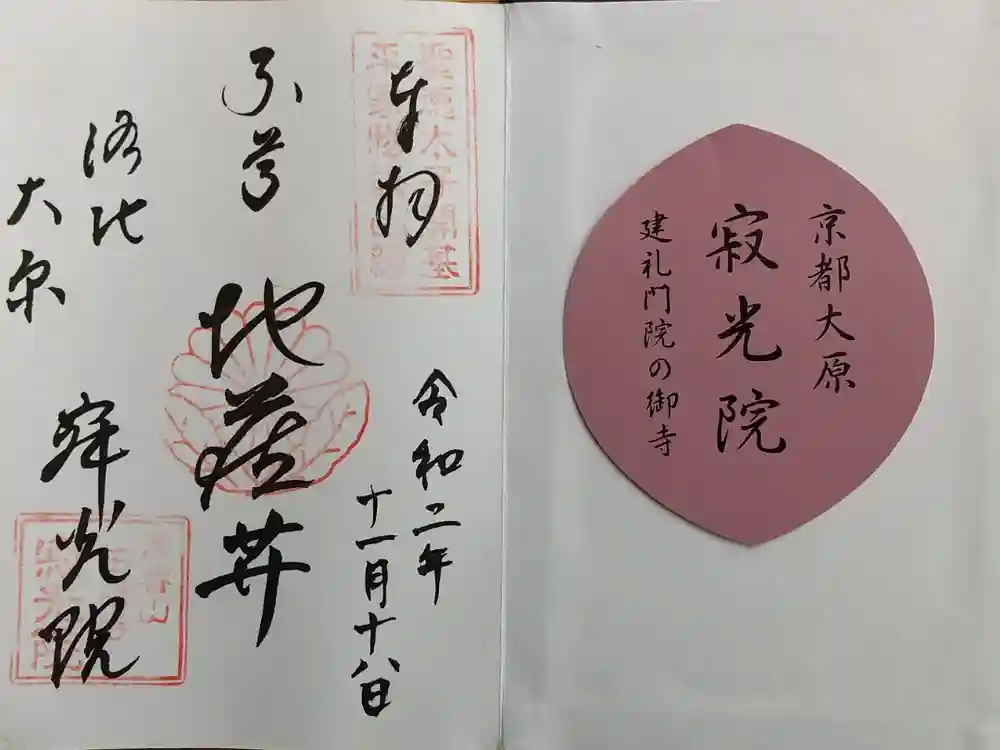 京都大原
寂光院
建礼門院の御寺
奉拝
聖徳太子開基
令和二年
十一月十八日
本尊
地蔵𦬇
洛北
大原
寂光院